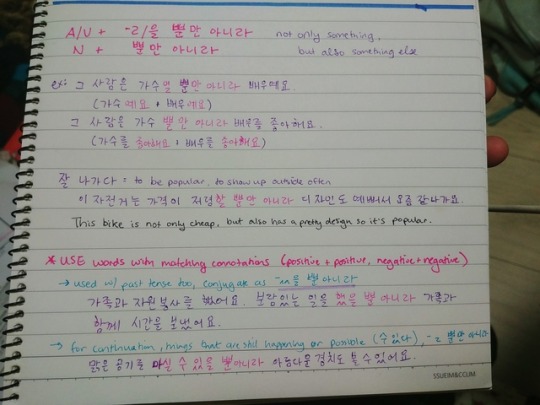 A/V + -ㄹ/을 뿐만 아니라 not only something,
N + 뿐만 아니라 but also something else
ex: 그 사람은 가수일 뿐만 아니라 배우예요.
(가수예요 + 배우예요)
그 사람은 가수 뿐만 아니라 배우를 좋아해요.
(가수를 좋아해요 + 배우를 좋아해요)
잘 나가다 = to be popular, to show up outside often
이 자전거는 가격이 저렴할 뿐만 아니라 디자인도 예뻐서 요즘 잘나가요.
This bike is not only cheap, but also has a pretty design so it's popular.
* USE words with matching connotations (positive + positive, negative + negative)
→ used w/ past tense too, conjugate as -ㅆ을 뿐 아니라
가족과 자원봉사를 했어요. 보람있는 일을 했을 뿐 아니라 가족과
함께 시간을 보냈어요.
→ for continuation, things that are still happening or possible (수 있다), -ㄹ 뿐만 아니라
맑은 공기를 마실 수 있을 뿐아니라 아름다운 경치도 볼 수 있어요.
SSUEIM&CCLIM